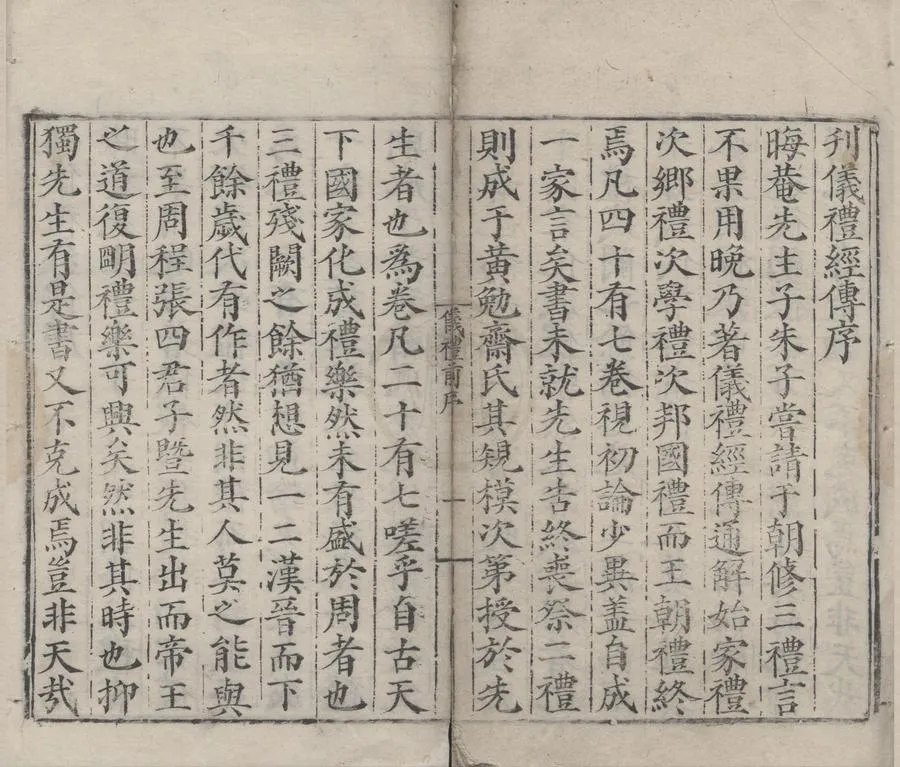 刋儀禮經傳序
晦菴先生子朱子嘗請于朝修三禮言
不果用晚乃著儀禮經傳通解始家禮
次鄉禮次學禮次邦國禮而王朝禮終
焉凡四十有七卷視初論少異盖自成
一家言矣書未就先生告終喪祭二禮
則成于黄勉齋氏其䂓模次第授於先
儀禮前序
一
生者也為卷凡二十有七嗟乎自古天
下國家化成禮樂然未有盛於周者也
三禮殘闕之餘猶想見一二漢晉而下
千餘歲代有作者然非其人莫之能與
也至周程張四君子曁先生出而帝王
之道復明禮樂可興矣然非其時也抑
獨先生有是書又不克成焉豈非天㢤